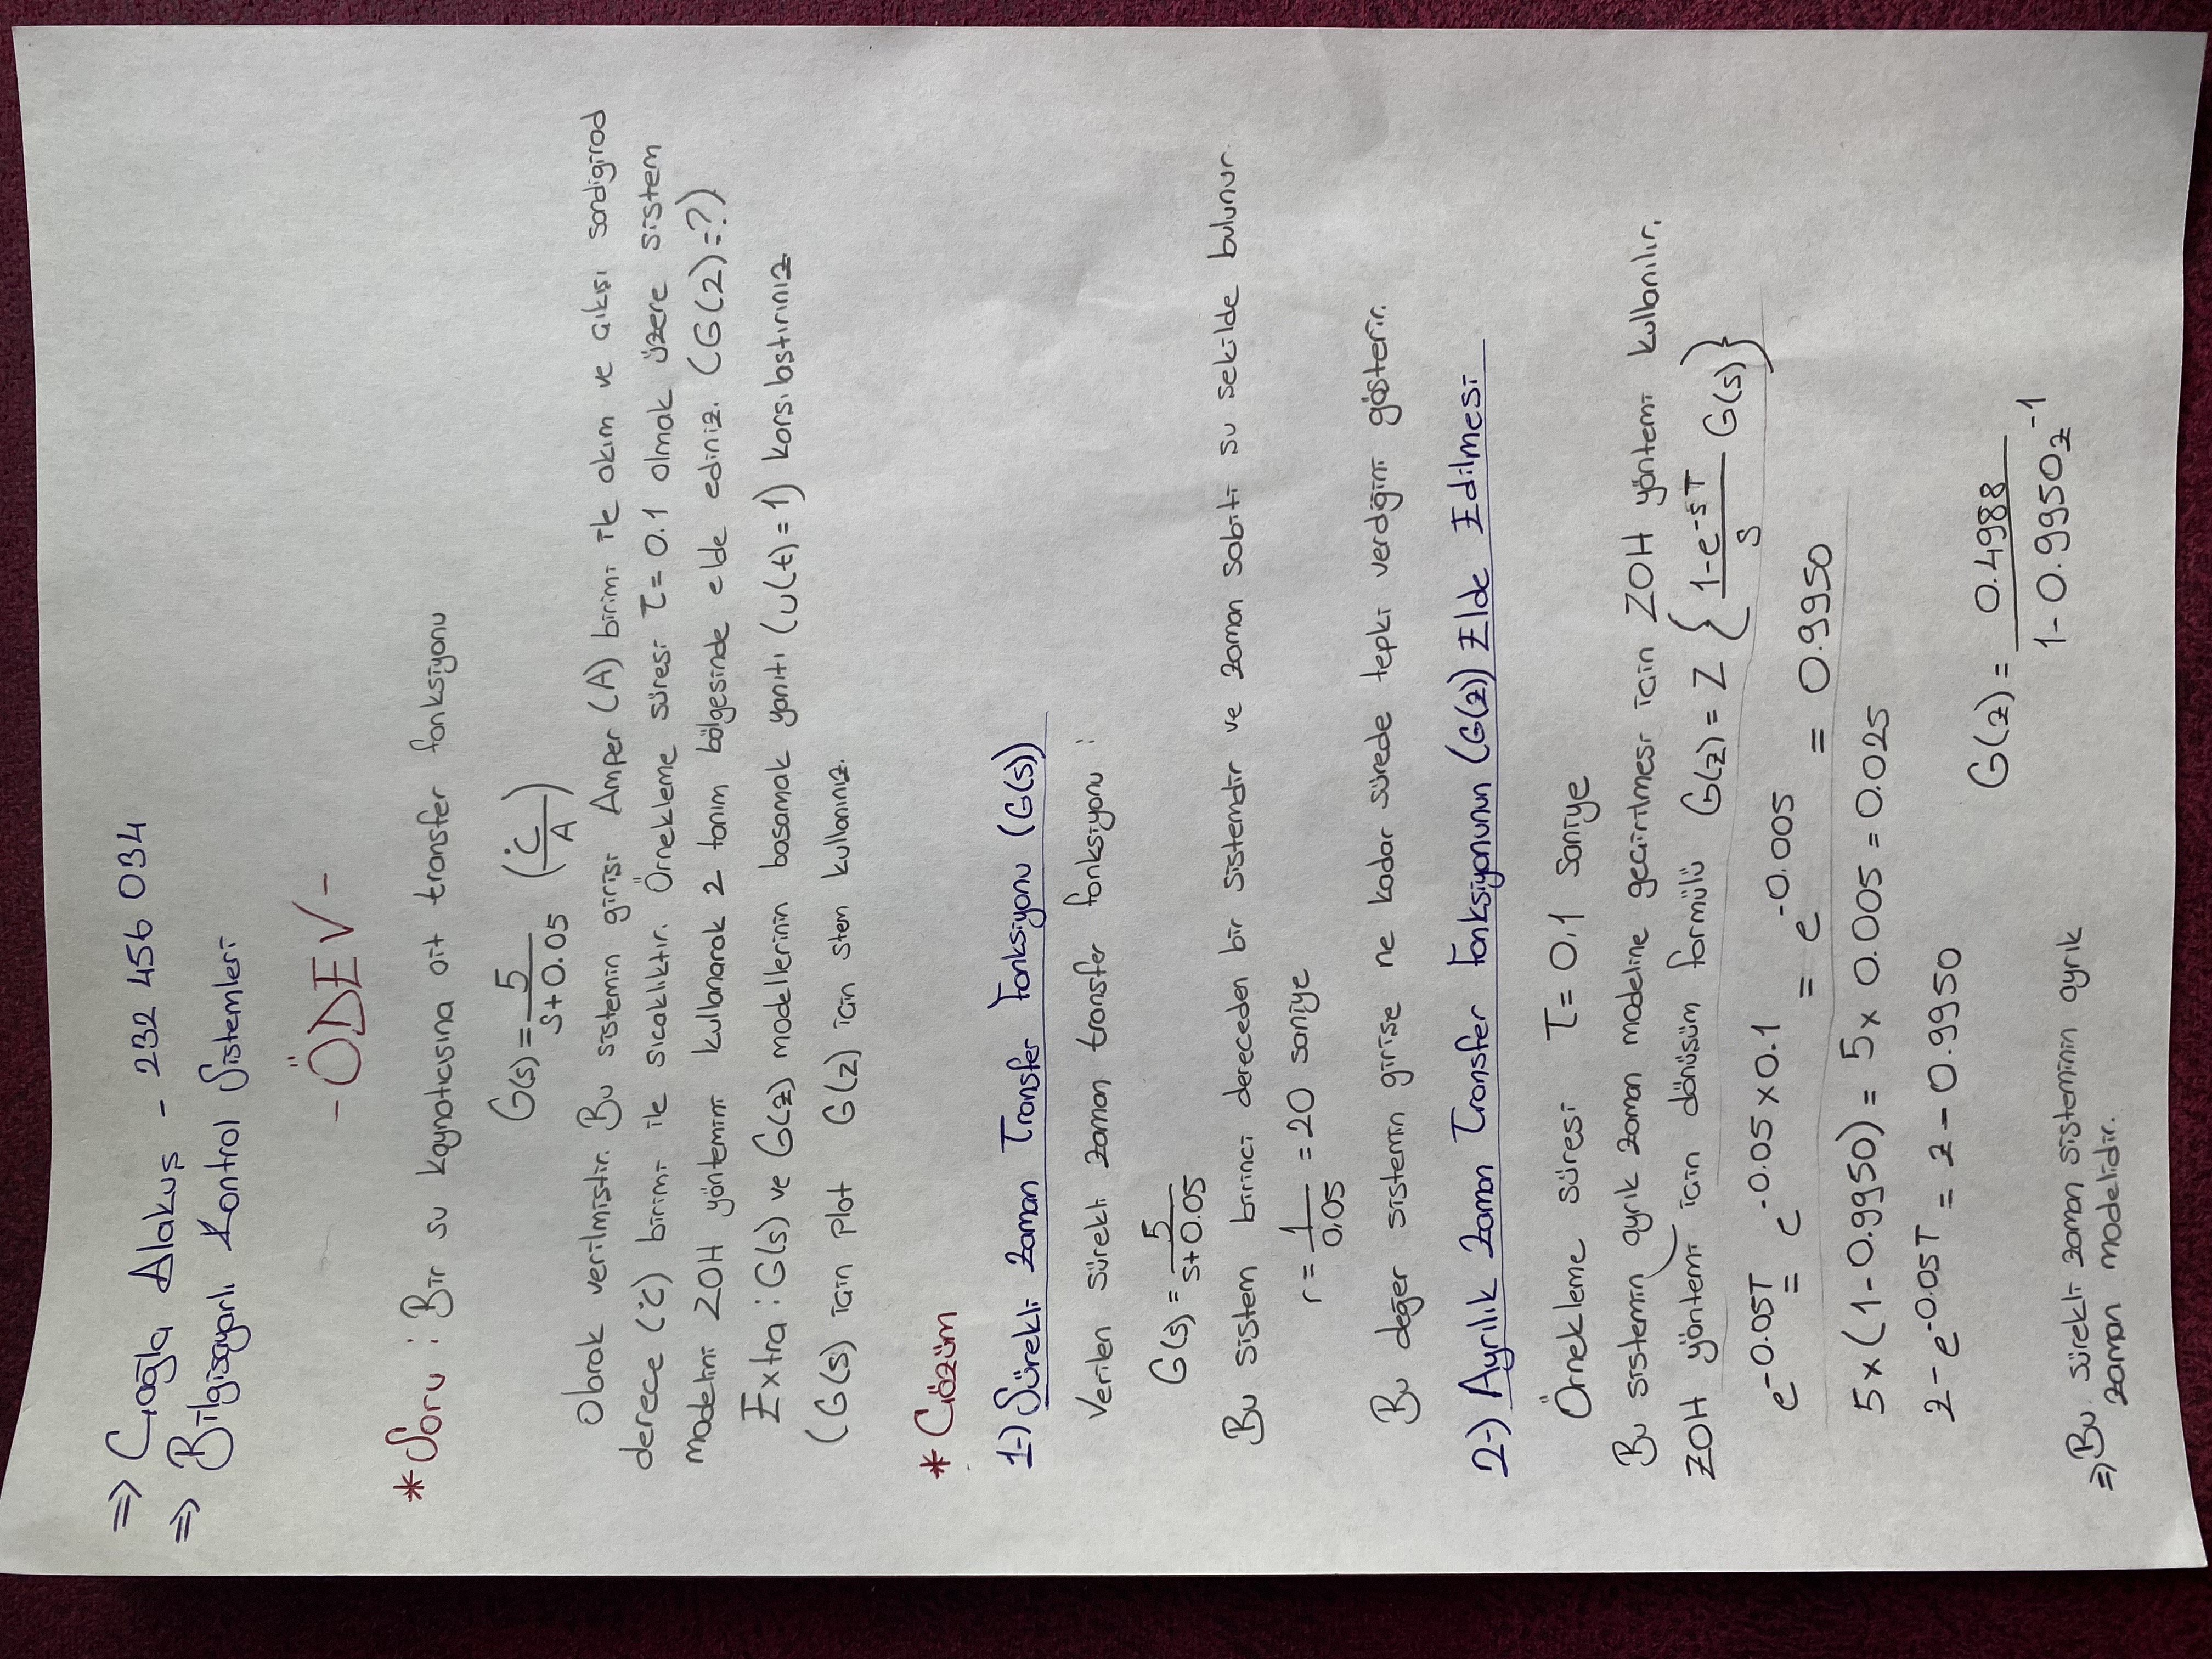 ⇒ Çağla Alakuş - 232 456 034
⇒ Bilgisayarlı Kontrol Sistemleri
- ÖDEV -
* Soru : Bir su kaynatıcısına ait transfer fonksiyonu
G(s) = 5 / (s+0.05) (°C / A)
Olarak verilmiştir. Bu sistemin girişi Amper (A) birimi ile akım ve çıkışı sandigirad
derece (°C) birimi ile sıcaklıktır. Örnekleme süresi T = 0.1 olmak üzere sistem
modelini ZOH yöntemini kullanarak z tanım bölgesinde elde ediniz. (G(z)=?)
Extra : G(s) ve G(z) modellerinin basamak yanıtı (u(t) = 1) karsılastırınız
(G(s) için plot G(z) için stem kullanınız.
* Çözüm
1-) Sürekli Zaman Transfer Fonksiyonu (G(s))
Verilen sürekli zaman transfer fonksiyonu :
G(s) = 5 / (s+0.05)
Bu sistem birinci dereceden bir sistemdir ve zaman sabiti su sekilde bulunur.
r = 1 / 0,05 = 20 saniye
Bu değer sistemin girise ne kadar sürede tepki verdiğini gösterir.
2-) Ayrılık Zaman Transfer Fonksiyonunun (G(z)) Elde Edilmesi
Örnekleme süresi T = 0,1 saniye
Bu sistemin ayrık zaman modeline geçirilmesi için ZOH yöntemi kullanılır.
ZOH yöntemi için dönüsüm formülü G(z) = Z { (1-e^-sT) / s G(s) }
e^-0.05T = e^-0.05x0.1 = e^-0.005 = 0.9950
5x(1-0.9950) = 5x 0.005 = 0.025
z - e^-0.05T = z - 0.9950
G(z) = 0.4988 / (1- 0.9950z^-1)
⇒ Bu sürekli zaman sisteminin ayrık
zaman modelidir.